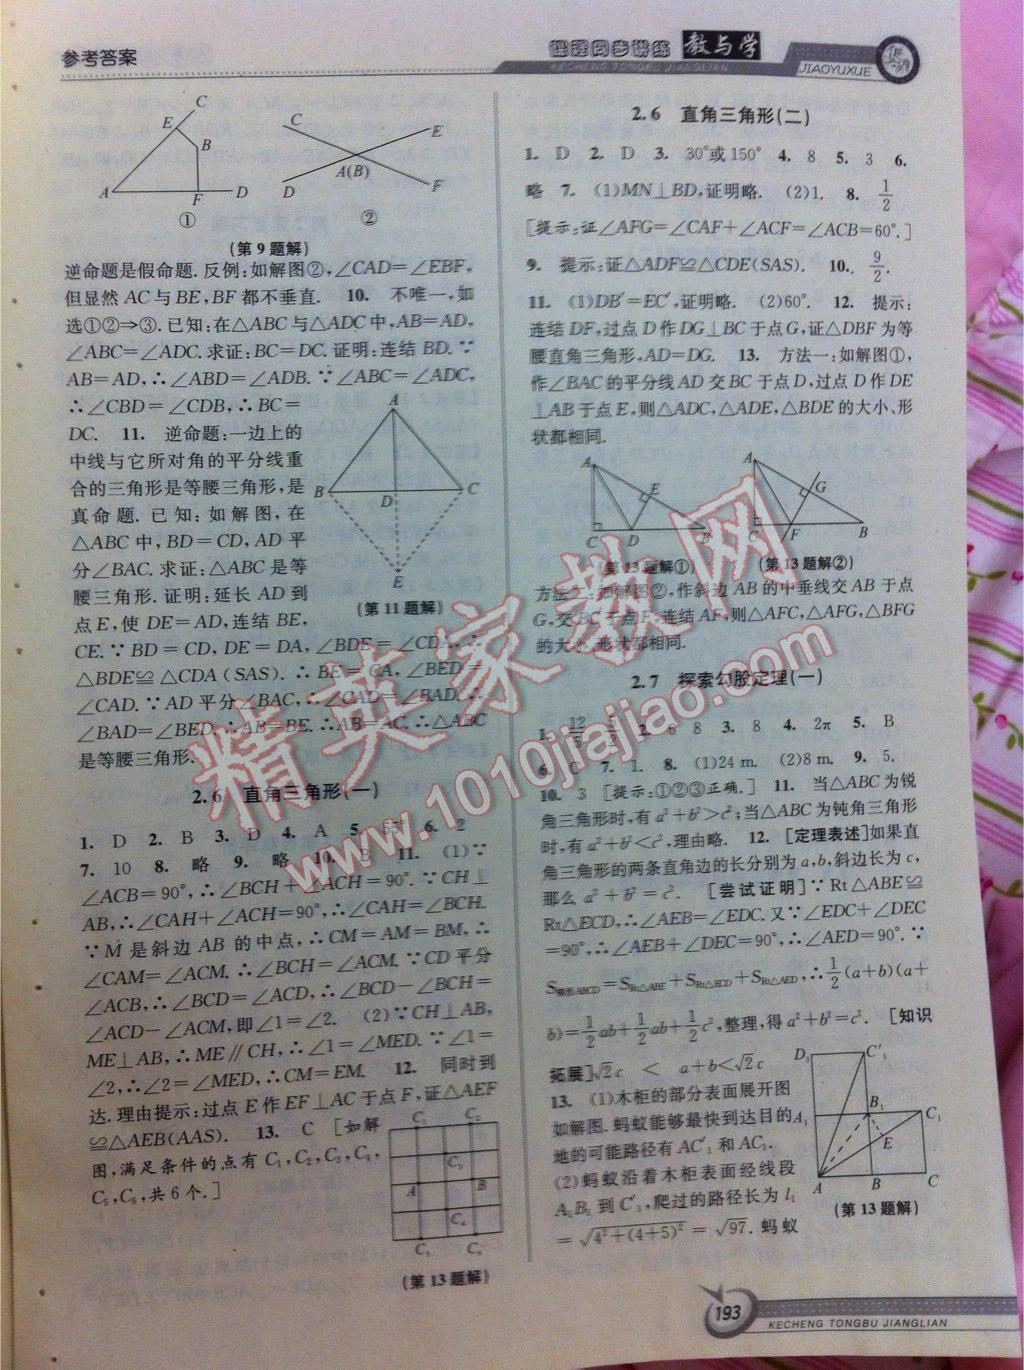 参考答案
课程同步讲练 教与学
KECHENG TONGBU JIANGLIAN
JIAOYUXUE
C
E
B
A
F
D
①
C
E
A(B)
D
F
②
(第9题解)
逆命题是假命题. 反例:如解图②,∠CAD=∠EBF,
但显然 AC 与 BE,BF 都不垂直. 10. 不唯一,如
选①②⇒③. 已知:在△ABC与△ADC 中,AB=AD,
∠ABC=∠ADC. 求证:BC=DC. 证明:连结 BD. ∵
AB=AD,∴∠ABD=∠ADB. ∵∠ABC=∠ADC,
∴∠CBD=∠CDB,∴BC=
DC. 11. 逆命题:一边上的
中线与它所对角的平分线重
合的三角形是等腰三角形,是
真命题. 已知:如解图,在
△ABC 中,BD=CD,AD 平
分∠BAC. 求证:△ABC 是等
腰三角形. 证明:延长 AD 到
点 E,使 DE=AD,连结 BE,
CE. ∵BD=CD,DE=DA,∠BDE=∠CDA,∴
△BDE≌△CDA (SAS). ∴BE=CA,∠BED=
∠CAD. ∵AD 平分∠BAC,∴∠CAD=∠BAD. ∴
∠BAD=∠BED. ∴AB=BE. ∴AB=AC. ∴△ABC
是等腰三角形.
A
B
D
C
E
(第11题解)
2.6 直角三角形(一)
1. D 2. B 3. D 4. A 5. 55° 6. 2
7. 10 8. 略 9. 略 10. B 11. (1)∵
∠ACB=90°,∴∠BCH+∠ACH=90°. ∵CH⊥
AB,∴∠CAH+∠ACH=90°,∴∠CAH=∠BCH.
∵M 是斜边 AB 的中点,∴CM=AM=BM,∴
∠CAM=∠ACM. ∴∠BCH=∠ACM. ∵CD 平分
∠ACB,∴∠BCD=∠ACD,∴∠BCD-∠BCH=
∠ACD-∠ACM,即∠1=∠2. (2)∵CH⊥AB,
ME⊥AB,∴ME∥CH,∴∠1=∠MED. ∵∠1=
∠2,∴∠2=∠MED,∴CM=EM. 12. 同时到
达. 理由提示:过点 E 作 EF⊥AC 于点 F,证△AEF
≌△AEB(AAS). 13. C [如解
图,满足条件的点有 C₁,C₂,C₃,C₄,
C₅,C₆,共6个.]
C₁
C₂
C₃
A
B
C₄
C₅
C₆
(第13题解)
2.6 直角三角形(二)
1. D 2. D 3. 30°或150° 4. 8 5. 3 6.
略 7. (1)MN⊥BD,证明略. (2)1. 8. 1/2
[提示:证∠AFG=∠CAF+∠ACF=∠ACB=60°.]
9. 提示:证△ADF≌△CDE(SAS). 10. 9/2.
11. (1)DB′=EC′,证明略. (2)60°. 12. 提示:
连结 DF,过点 D 作 DG⊥BC 于点 G,证△DBF 为等
腰直角三角形,AD=DG. 13. 方法一:如解图①,
作∠BAC 的平分线 AD 交 BC 于点 D,过点 D 作 DE
⊥AB 于点 E,则△ADC,△ADE,△BDE 的大小、形
状都相同.
A
E
C
D
B
(第13题解①)
A
G
C
F
B
(第13题解②)
方法二:如解图②,作斜边 AB 的中垂线交 AB 于点
G,交 BC 于点 F,连结 AF,则△AFC,△AFG,△BFG
的大小、形状都相同.
2.7 探索勾股定理(一)
1. 12/5 2. 6 8 3. 8 4. 2π 5. B
6. C 7. 1. 8. (1)24 m. (2)8 m. 9. 5.
10. 3 [提示:①②③正确.] 11. 当△ABC 为锐
角三角形时,有 a²+b²>c²;当△ABC 为钝角三角形
时,有 a²+b²<c²,理由略. 12. [定理表述]如果直
角三角形的两条直角边的长分别为 a,b,斜边长为 c,
那么 a²+b²=c². [尝试证明]∵Rt△ABE≌
Rt△ECD,∴∠AEB=∠EDC. 又∵∠EDC+∠DEC
=90°,∴∠AEB+∠DEC=90°,∴∠AED=90°. ∵
S梯形ABCD=SRt△ABE+SRt△ECD+SRt△AED,∴1/2(a+b)(a+
b)=1/2ab+1/2ab+1/2c²,整理,得 a²+b²=c². [知识
拓展]√2c < a+b<√2c
13. (1)木柜的部分表面展开图
如解图. 蚂蚁能够最快到达目的
地的可能路径有 AC′₁ 和 AC₁.
(2)蚂蚁沿着木柜表面经线段
A₁B₁ 到 C′₁,爬过的路径长为 l₁
=√(4²+(4+5)²)=√97. 蚂蚁
D₁
C′₁
A₁
B₁
C₁
A
B
C
(第13题解)
精英家教网
www.1010jiajiao.com
193
KECHENG TONGBU JIANGLIAN